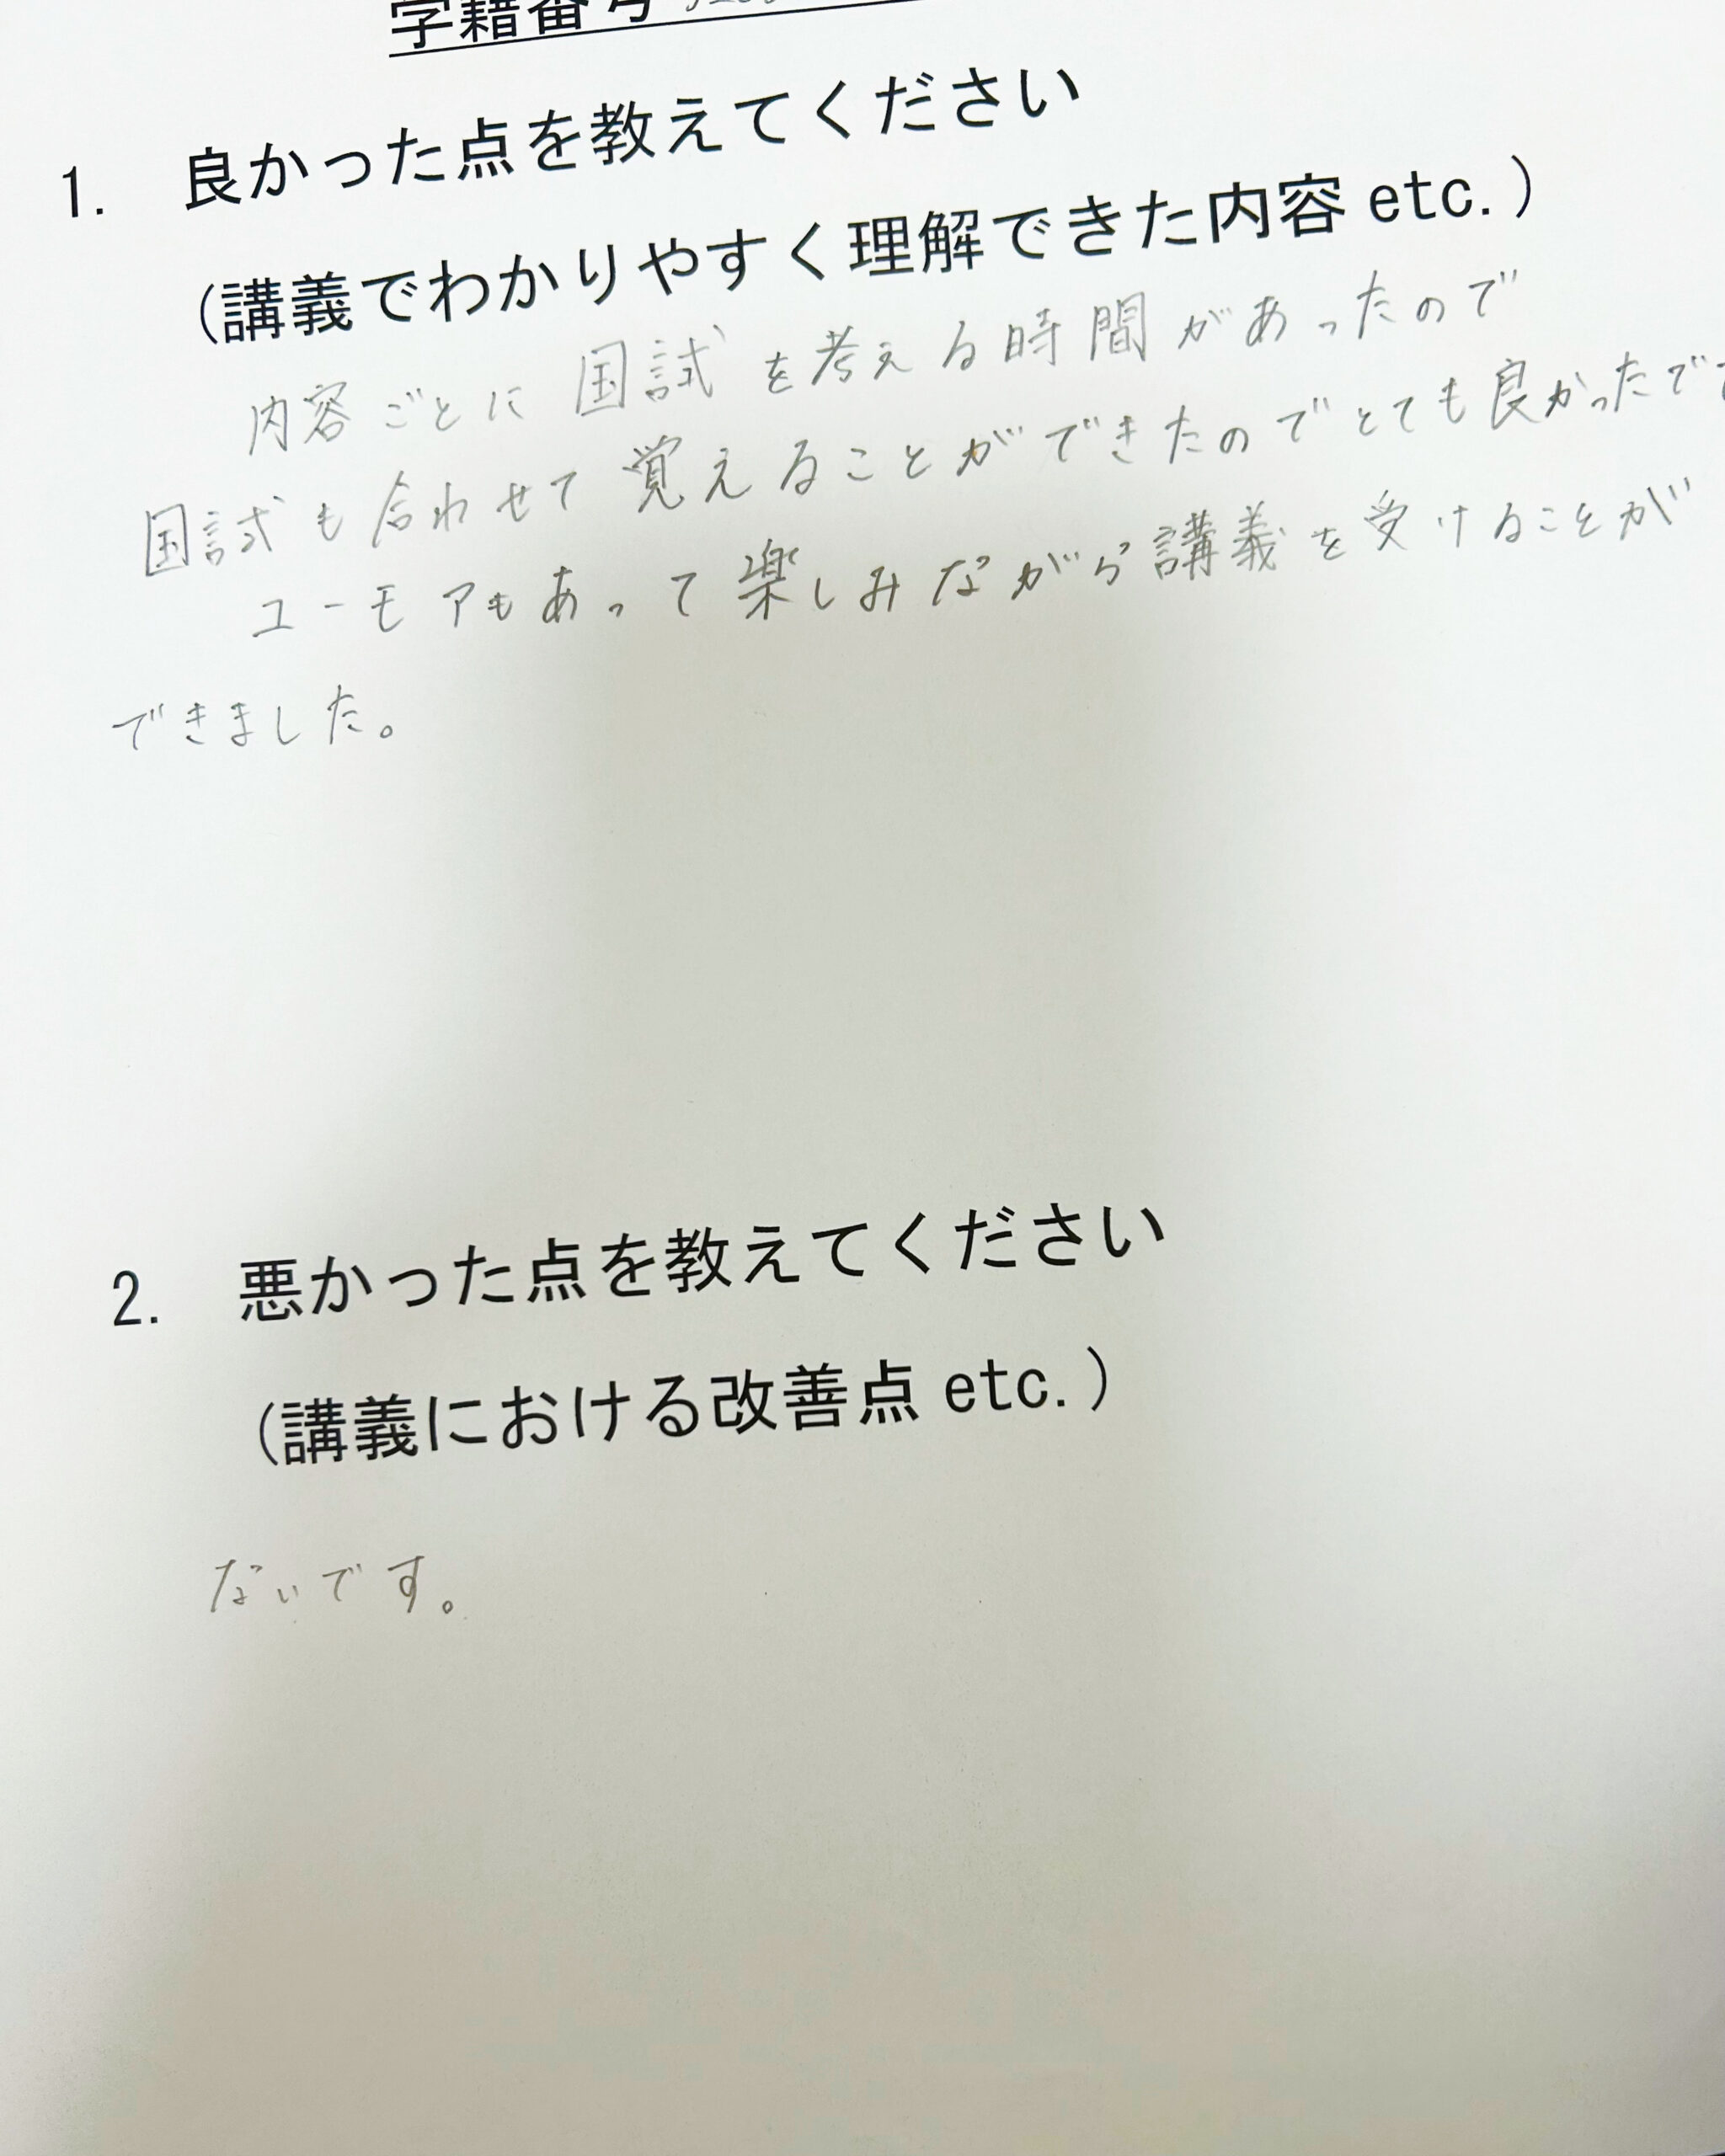 学籍番号
1. 良かった点を教えてください
(講義でわかりやすく理解できた内容 etc.)
内容ごとに国試を考える時間があったので
国試も合わせて覚えることができたのでとても良かったです
ユーモアもあって楽しみながら講義を受けることが
できました。
2. 悪かった点を教えてください
(講義における改善点 etc.)
ないです。